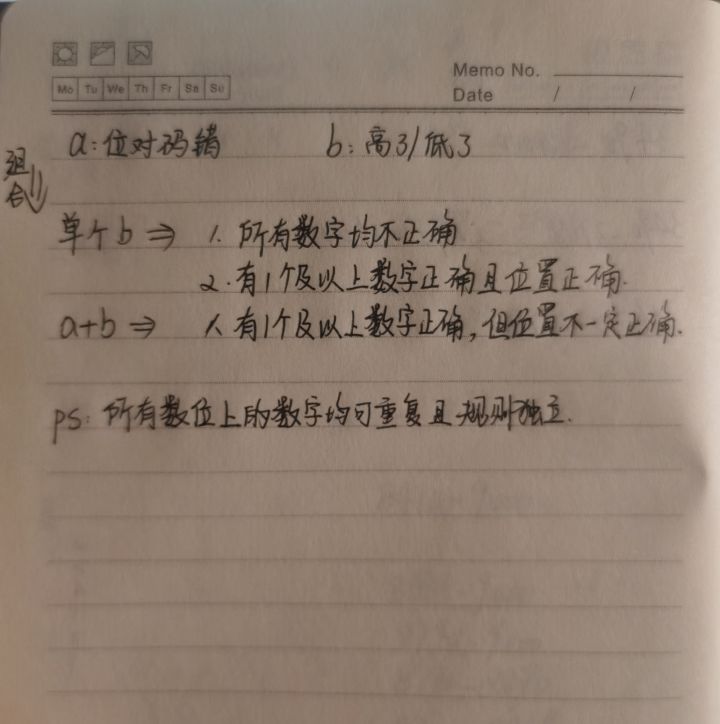 Memo No.
Mo Tu We Th Fr Sa Su
Date / /
a:位对码错 b:高了/低了
组合
单个b⇒ 1.所有数字均不正确
2.有1个及以上数字正确且位置正确.
a+b⇒ 1.有1个及以上数字正确,但位置不一定正确.
ps:所有数位上的数字均可重复且规则独立.